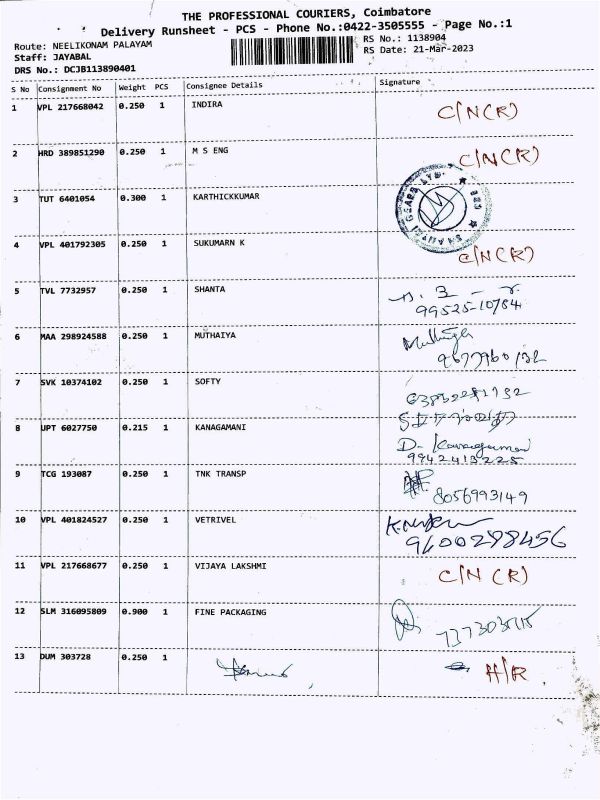 THE PROFESSIONAL COURIERS, Coimbatore
Delivery Runsheet - PCS - Phone No.:0422-3505555 - Page No.:1
Route: NEELIKONAM PALAYAM
RS No.: 1138904
Staff: JAYABAL
RS Date: 21-Mar-2023
DRS No.: DCJB113890401
S No Consignment No Weight PCS Consignee Details Signature
1 VPL 217668042 0.250 1 INDIRA C/N(R)
2 HRD 389851290 0.250 1 M S ENG C/N(R)
3 TUT 6401054 0.300 1 KARTHICKKUMAR
4 VPL 401792305 0.250 1 SUKUMARN K C/N(R)
5 TVL 7732957 0.250 1 SHANTA
99525-10784
6 MAA 298924588 0.250 1 MUTHAIYA
7 SVK 10374102 0.250 1 SOFTY
8 UPT 6027750 0.215 1 KANAGAMANI
D. Kanagamani
9942413225
9 TCG 193087 0.250 1 TNK TRANSP
8056993149
10 VPL 401824527 0.250 1 VETRIVEL
9600298456
11 VPL 217668677 0.250 1 VIJAYA LAKSHMI C/N (R)
12 SLM 316095809 0.900 1 FINE PACKAGING
13 DUM 303728 0.250 1 H/R